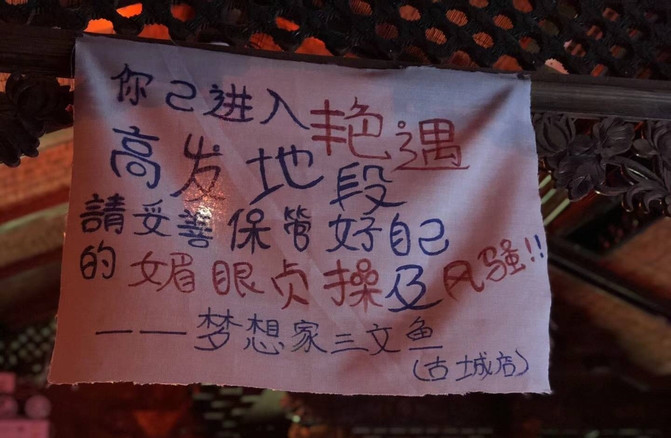 你已进入艳遇
高发地段
請妥善保管好自己
的媚眼贞操及风骚!!
——梦想家三文鱼
(古城店)